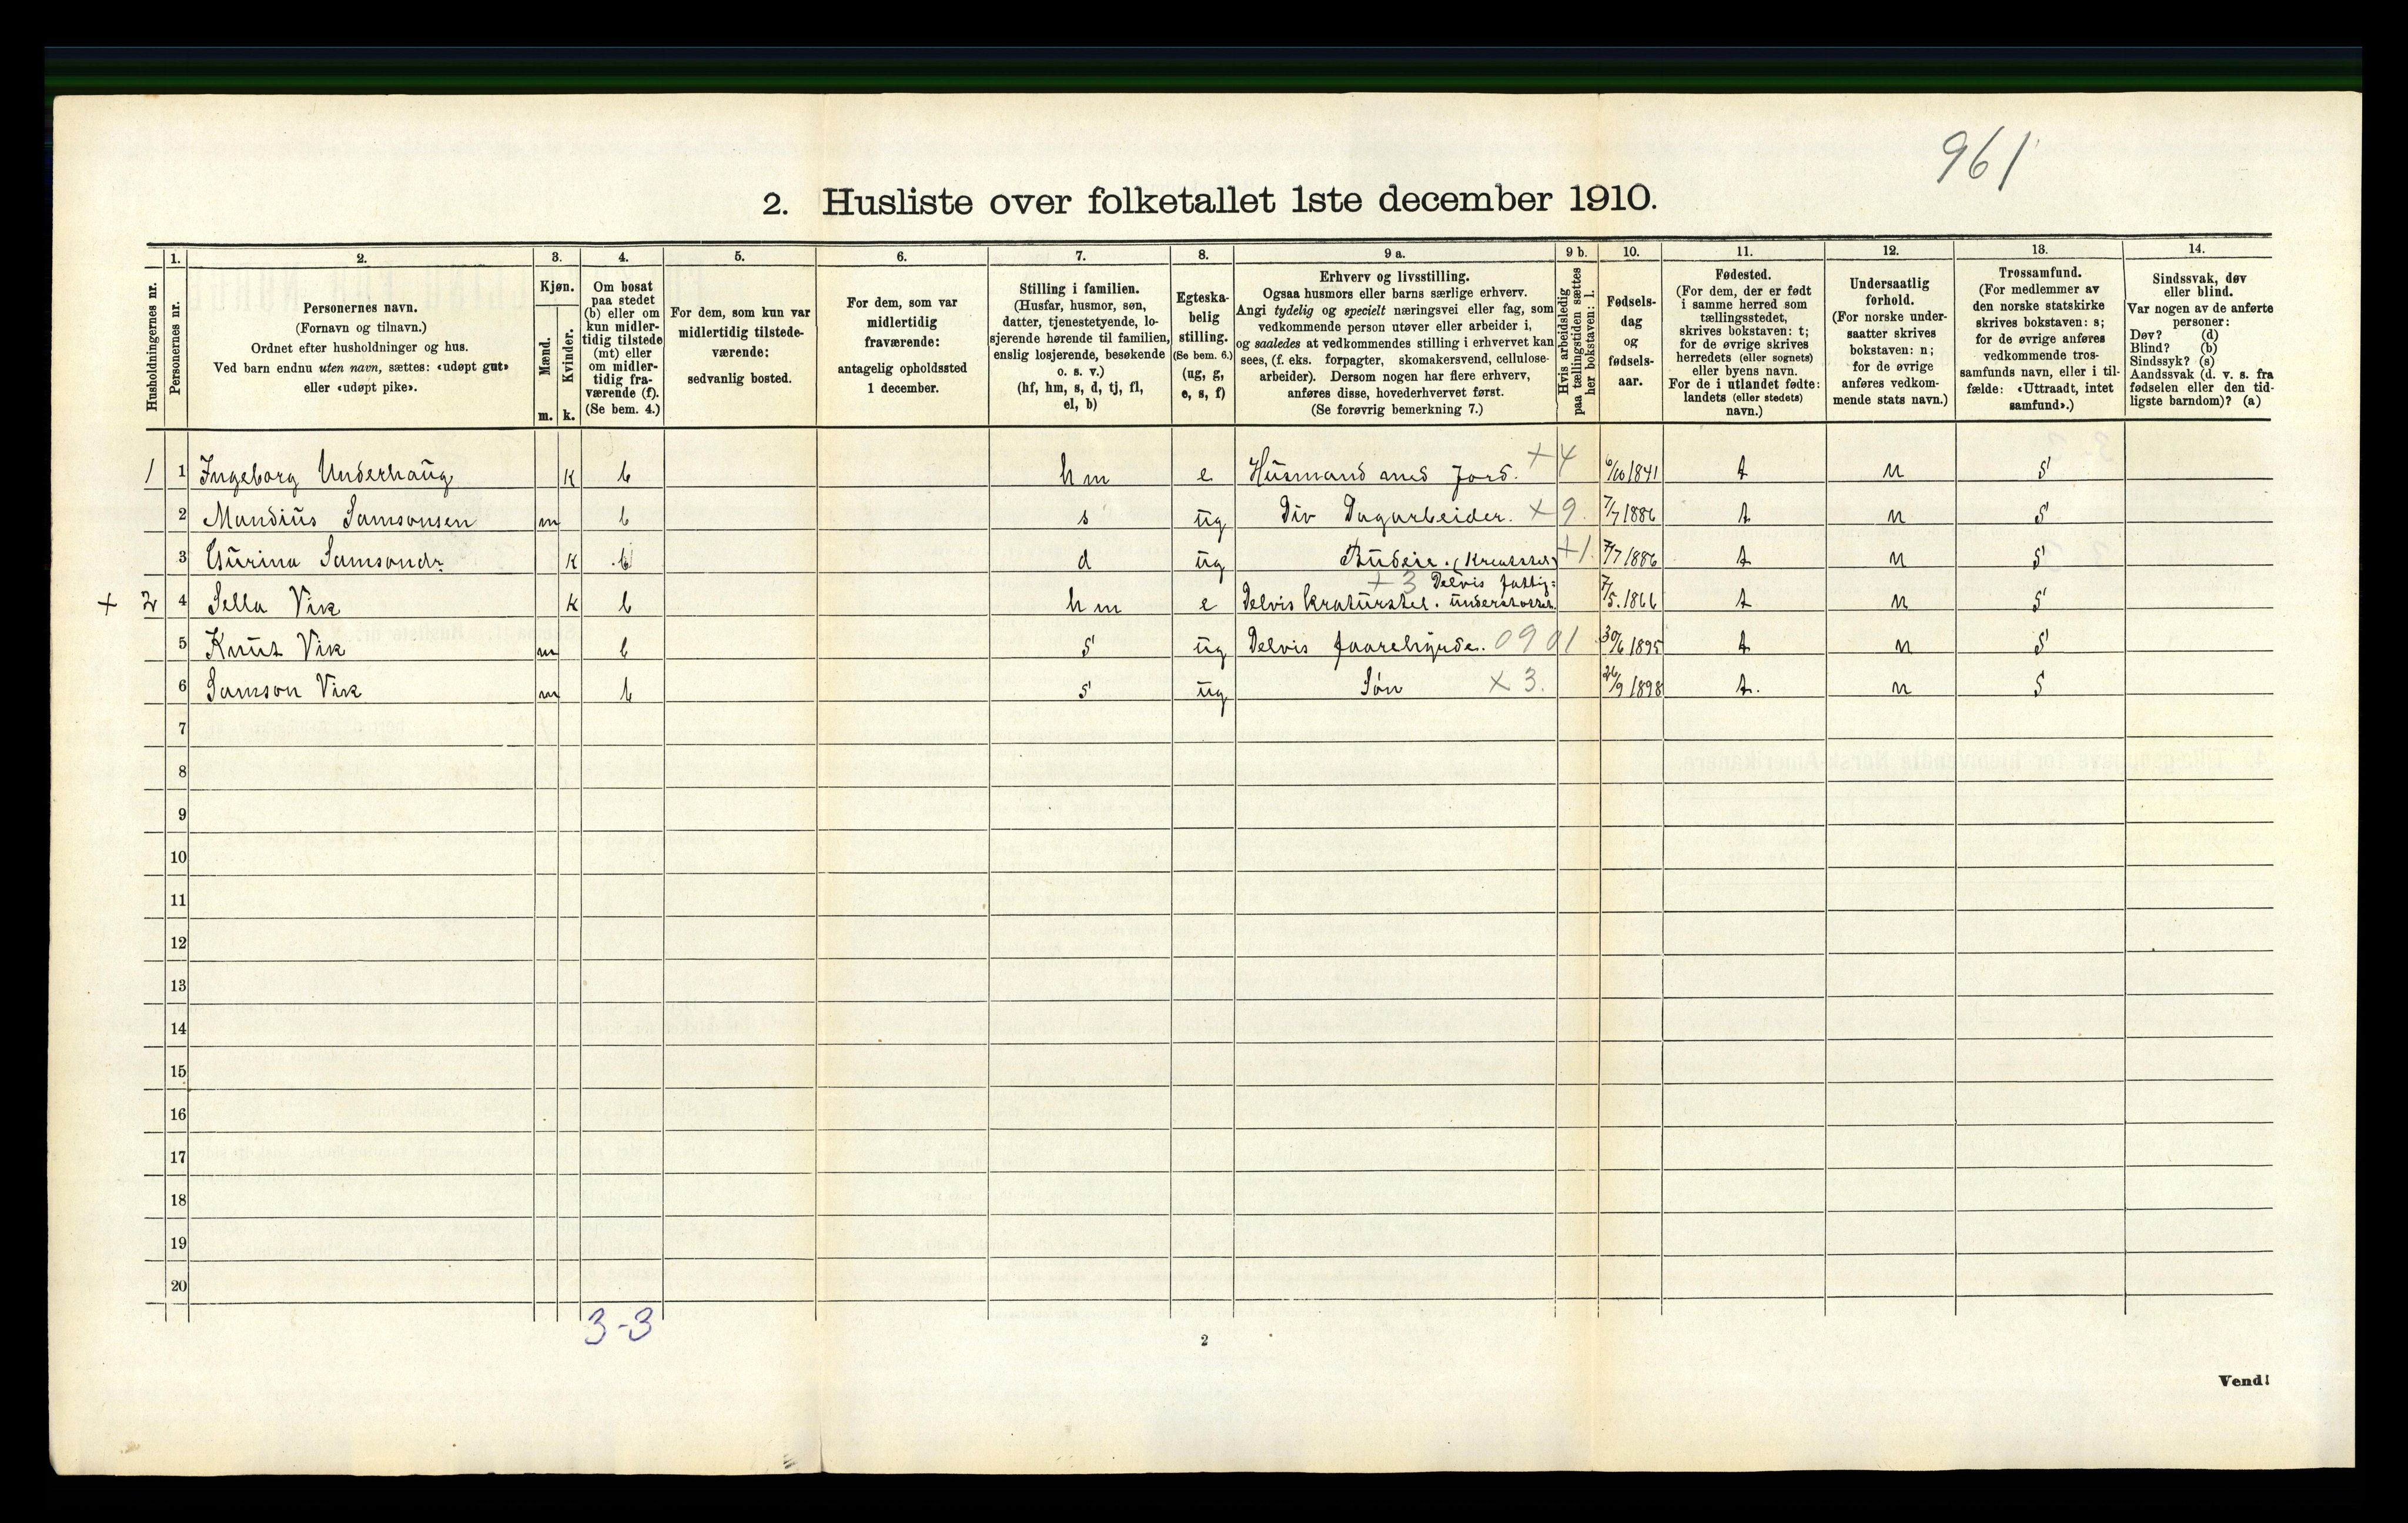 961
2. Husliste over folketallet 1ste december 1910.
Husholdningernes nr.
1.
Personernes nr.
2.
Personernes navn.
(Fornavn og tilnavn.)
Ordnet efter husholdninger og hus.
Ved barn endnu uten navn, sættes: «udøpt gut»
eller «udøpt pike».
3.
Kjøn.
Mænd.
Kvinder.
m. k.
4.
Om bosat
paa stedet
(b) eller om
kun midler-
tidig tilstede
(mt) eller
om midler-
tidig fra-
værende (f).
(Se bem. 4.)
5.
For dem, som kun var
midlertidig tilstede-
værende:
sedvanlig bosted.
6.
For dem, som var
midlertidig
fraværende:
antagelig opholdssted
1 december.
7.
Stilling i familien.
(Husfar, husmor, søn,
datter, tjenestetyende, lo-
sjerende hørende til familien,
enslig losjerende, besøkende
o. s. v.)
(hf, hm, s, d, tj, fl,
el, b)
8.
Egteska-
belig
stilling.
(Se bem. 6.)
(ug, g,
e, s, f)
9 a.
Erhverv og livsstilling.
Ogsaa husmors eller barns særlige erhverv.
Angi tydelig og specielt næringsvei eller fag, som
vedkommende person utøver eller arbeider i,
og saaledes at vedkommendes stilling i erhvervet kan
sees, (f. eks. forpagter, skomakersvend, cellulose-
arbeider). Dersom nogen har flere erhverv,
anføres disse, hovederhvervet først.
(Se forøvrig bemerkning 7.)
9 b.
Hvis arbeidsledig
paa tællingstiden sættes
her bokstaven: l.
10.
Fødsels-
dag
og
fødsels-
aar.
11.
Fødested.
(For dem, der er født
i samme herred som
tællingsstedet,
skrives bokstaven: t;
for de øvrige skrives
herredets (eller sognets)
eller byens navn.
For de i utlandet fødte:
landets (eller stedets)
navn.)
12.
Undersaatlig
forhold.
(For norske under-
saatter skrives
bokstaven: n;
for de øvrige
anføres vedkom-
mende stats navn.)
13.
Trossamfund.
(For medlemmer av
den norske statskirke
skrives bokstaven: s;
for de øvrige anføres
vedkommende tros-
samfunds navn, eller i til-
fælde: «Uttraadt, intet
samfund».)
14.
Sindssvak, døv
eller blind.
Var nogen av de anførte
personer:
Døv? (d)
Blind? (b)
Sindssyk? (s)
Aandssvak (d. v. s. fra
fødselen eller den tid-
ligste barndom)? (a)
1 1 Ingeborg Underhaug k b hm e Husmand med Jord. +4 6/10 1841 t n s
2 Mandius Samsonsen m b s ug Div Dagarbeider. +9 7/7 1886 t n s
3 Gurina Samsondr. k b d ug Budeie. (Kreatstel) +1 7/7 1886 t n s
+ 3 Delvis fattig=
+ 2 4 Sella Vik k b hm e Delvis kraturstel. understøttet. 7/5. 1866 t n s
5 Knut Vik m b s ug Delvis faarehyrde. 0901 30/6 1895 t n s
6 Samson Vik m b s ug Søn × 3. 26/9 1898 t. n s
7
8
9
10
11
12
13
14
15
16
17
18
19
20
3-3
2
Vend!